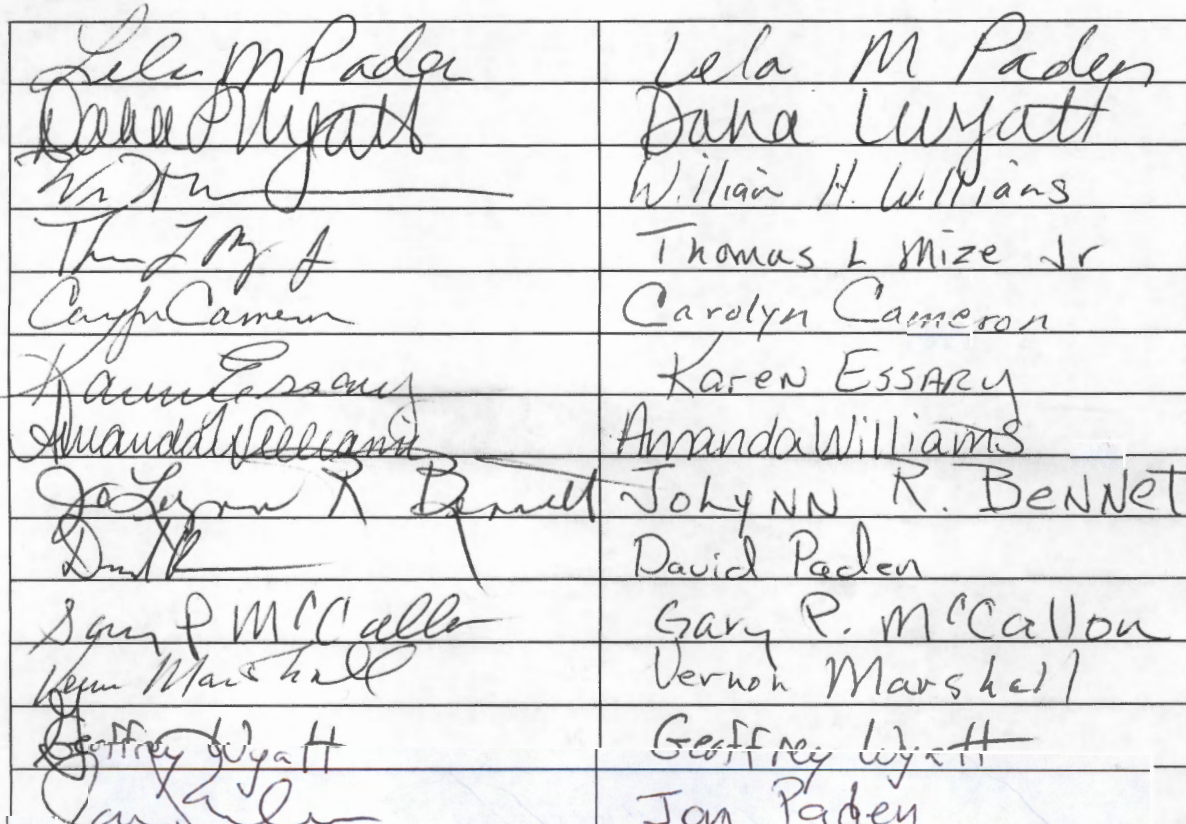 Lela M Paden Lela M Paden
Dana P Wyatt Dana Wyatt
William H. Williams
Thomas L Mize Jr
Carolyn Cameron Carolyn Cameron
Karen Essary Karen ESSARY
Amanda Williams Amanda Williams
JoLynn R Bennett JoLYNN R. BENNEt
David Paden
Gary P McCallon Gary P. McCallon
Vernon Marshall Vernon Marshall
Geoffrey Wyatt Geoffrey Wyatt
Jan Paden Jan Paden